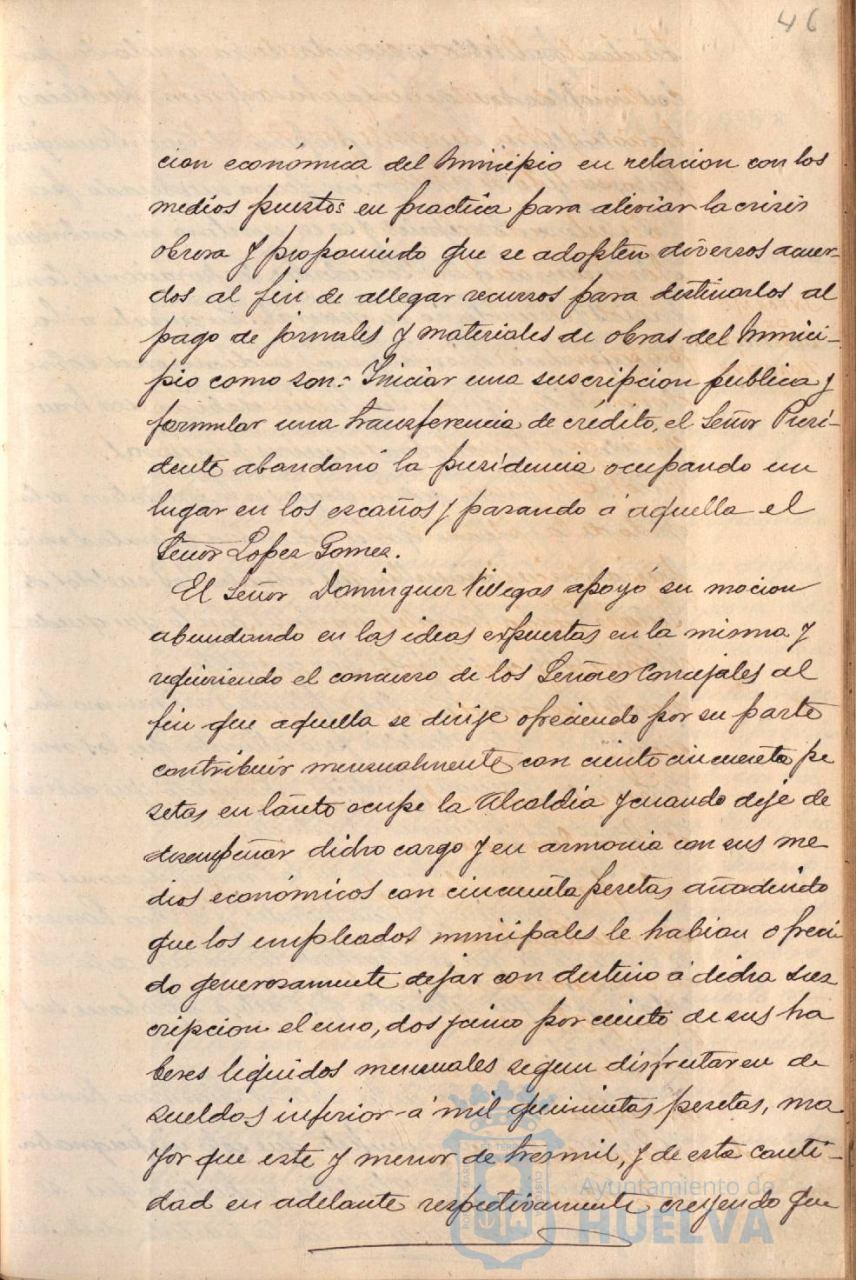 46
cion económica del Municipio en relacion con los
medios puestos en practica para aliviar la crisis
obrera y proponiendo que se adopten diversos acuer-
dos al fin de allegar recursos para destinarlos al
pago de jornales y materiales de obras del Munici-
pio como son:- Iniciar una suscripcion publica y
formular una transferencia de crédito, el Señor Presi-
dente abandonó la presidencia ocupando un
lugar en los escaños y pasando á aquella el
Señor Lopez Gomez.
El Señor Dominguez Villegas apoyó su mocion
abundando en las ideas expuestas en la misma y
requiriendo el concurso de los Señores Concejales al
fin que aquella se dirije ofreciendo por su parte
contribuir mensualmente con ciento cincuenta pe
setas en tanto ocupe la Alcaldía y cuando deje de
desempeñar dicho cargo y en armonia con sus me
dios económicos con cincuenta pesetas añadiendo
que los empleados municipales le habian ofreci
do generosamente dejar con destino á dicha sus
cripcion el uno, dos y cinco por ciento de sus ha
beres liquidos mensuales segun disfrutaren de
sueldos inferior á mil quinientas pesetas, ma
yor que este y menor de tres mil, y de esta canti-
dad en adelante respectivamente creyendo que
Ayuntamiento de
HUELVA